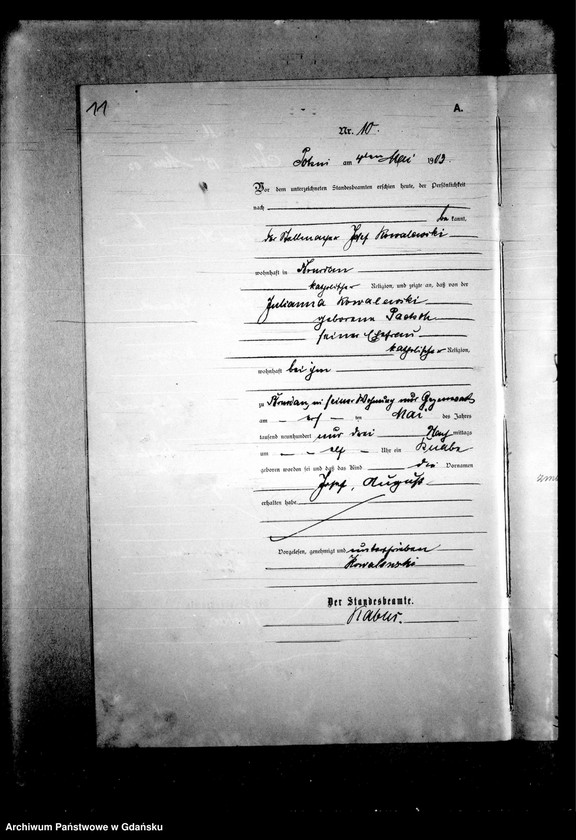 11
A.
Nr. 10.
am 4ten Mai 1903.
Vor dem unterzeichneten Standesbeamten erschien heute, der Persönlichkeit
nach
be kannt,
der Stellmacher Josef Kowalewski
wohnhaft in
katholischer Religion, und zeigte an, daß von der
Julianna Kowalewski
geborene
seiner Ehefrau
katholischer Religion,
wohnhaft bei ihm
zu in seiner Wohnung
am den Mai des Jahres
tausend neunhundert und drei Nach mittags
um elf Uhr ein Knabe
geboren worden sei und daß das Kind die Vornamen
Josef, August
erhalten habe
Vorgelesen, genehmigt und unterschrieben
Kowalewski
Der Standesbeamte.
Archiwum Państwowe w Gdańsku